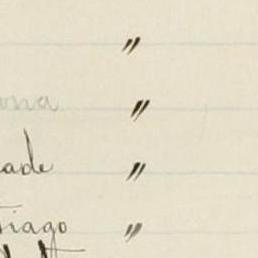 "
ona "
ade "
tiago "